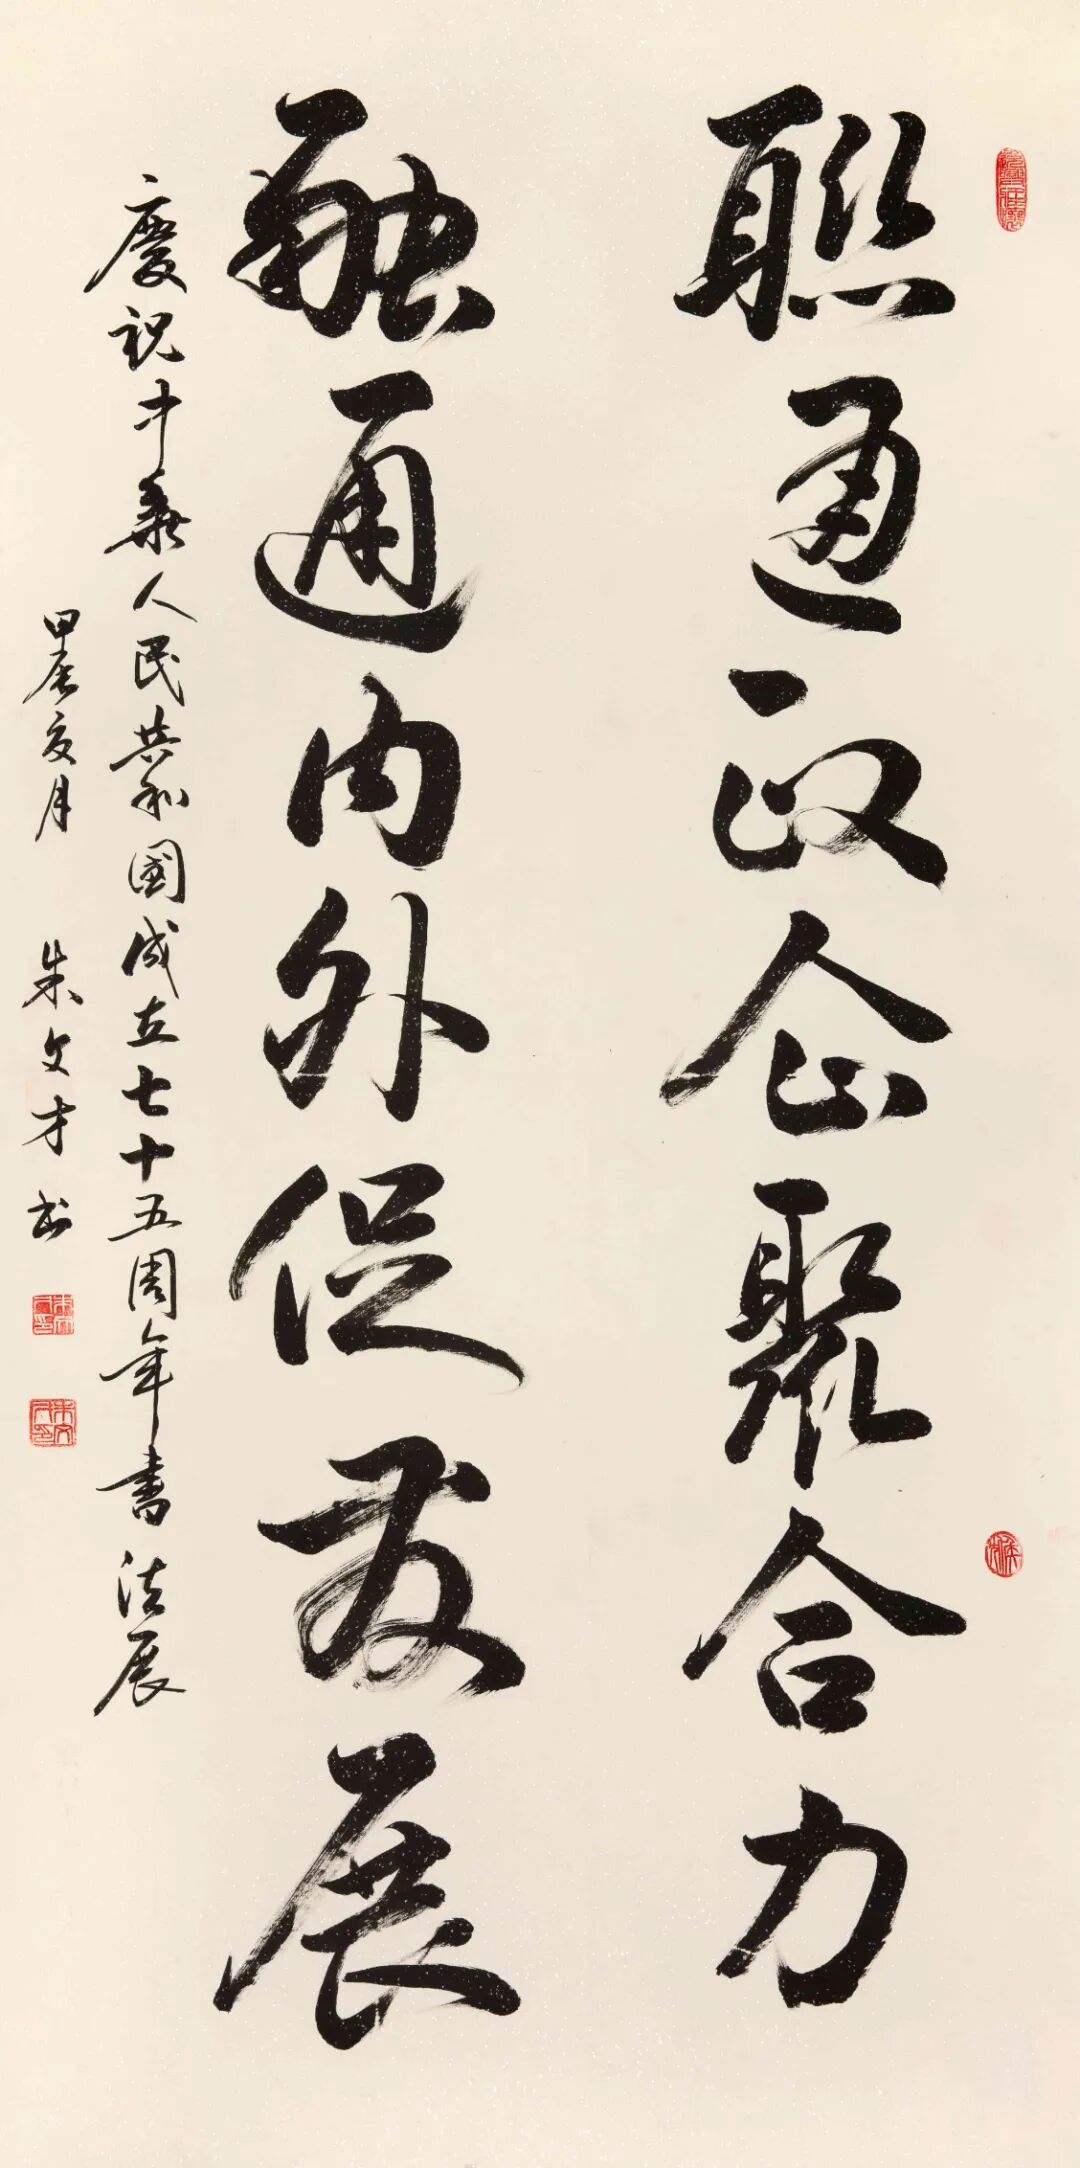 聯通政企聚合力
融通内外促發展
慶祝中華人民共和國成立七十五周年書法展
甲辰夏月 朱文才书